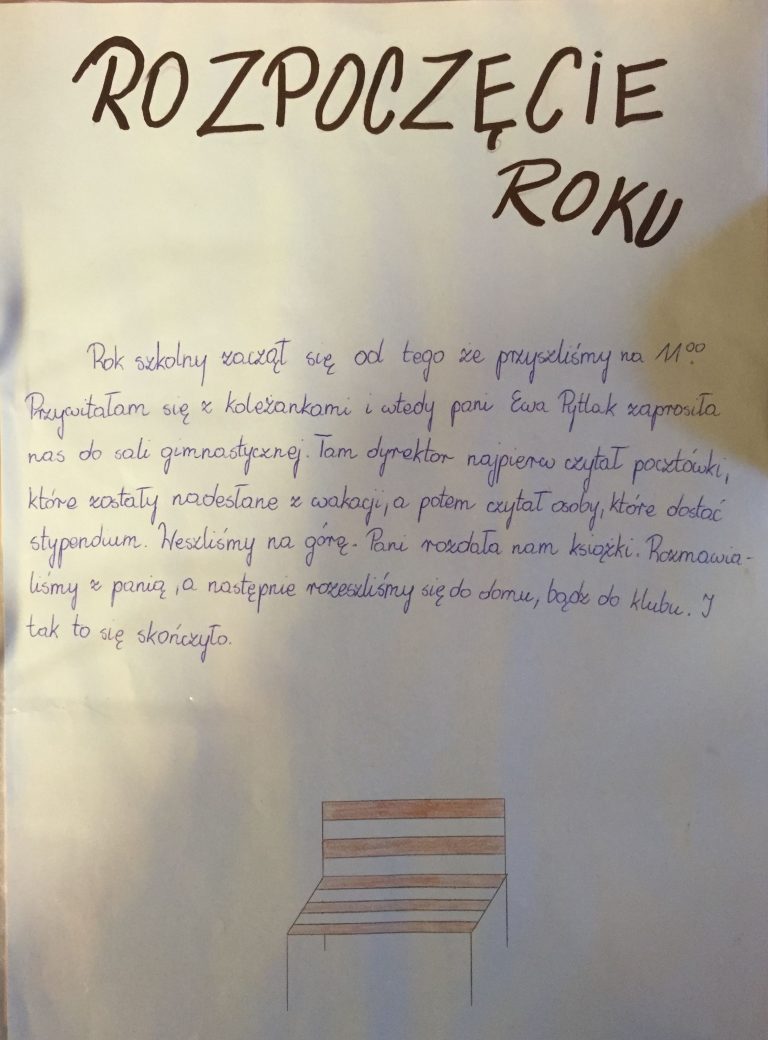 ROZPOCZĘCIE
ROKU
Rok szkolny zaczął się od tego że przyszliśmy na 11⁰⁰.
Przywitałam się z koleżankami i wtedy pani Ewa Pytlak zaprosiła
nas do sali gimnastycznej. Tam dyrektor najpierw czytał pocztówki,
które zostały nadesłane z wakacji, a potem czytał osoby, które dostać
stypendium. Weszliśmy na górę. Pani rozdała nam książki. Rozmawia-
liśmy z panią, a następnie rozeszliśmy się do domu, bądź do klubu. I
tak to się skończyło.